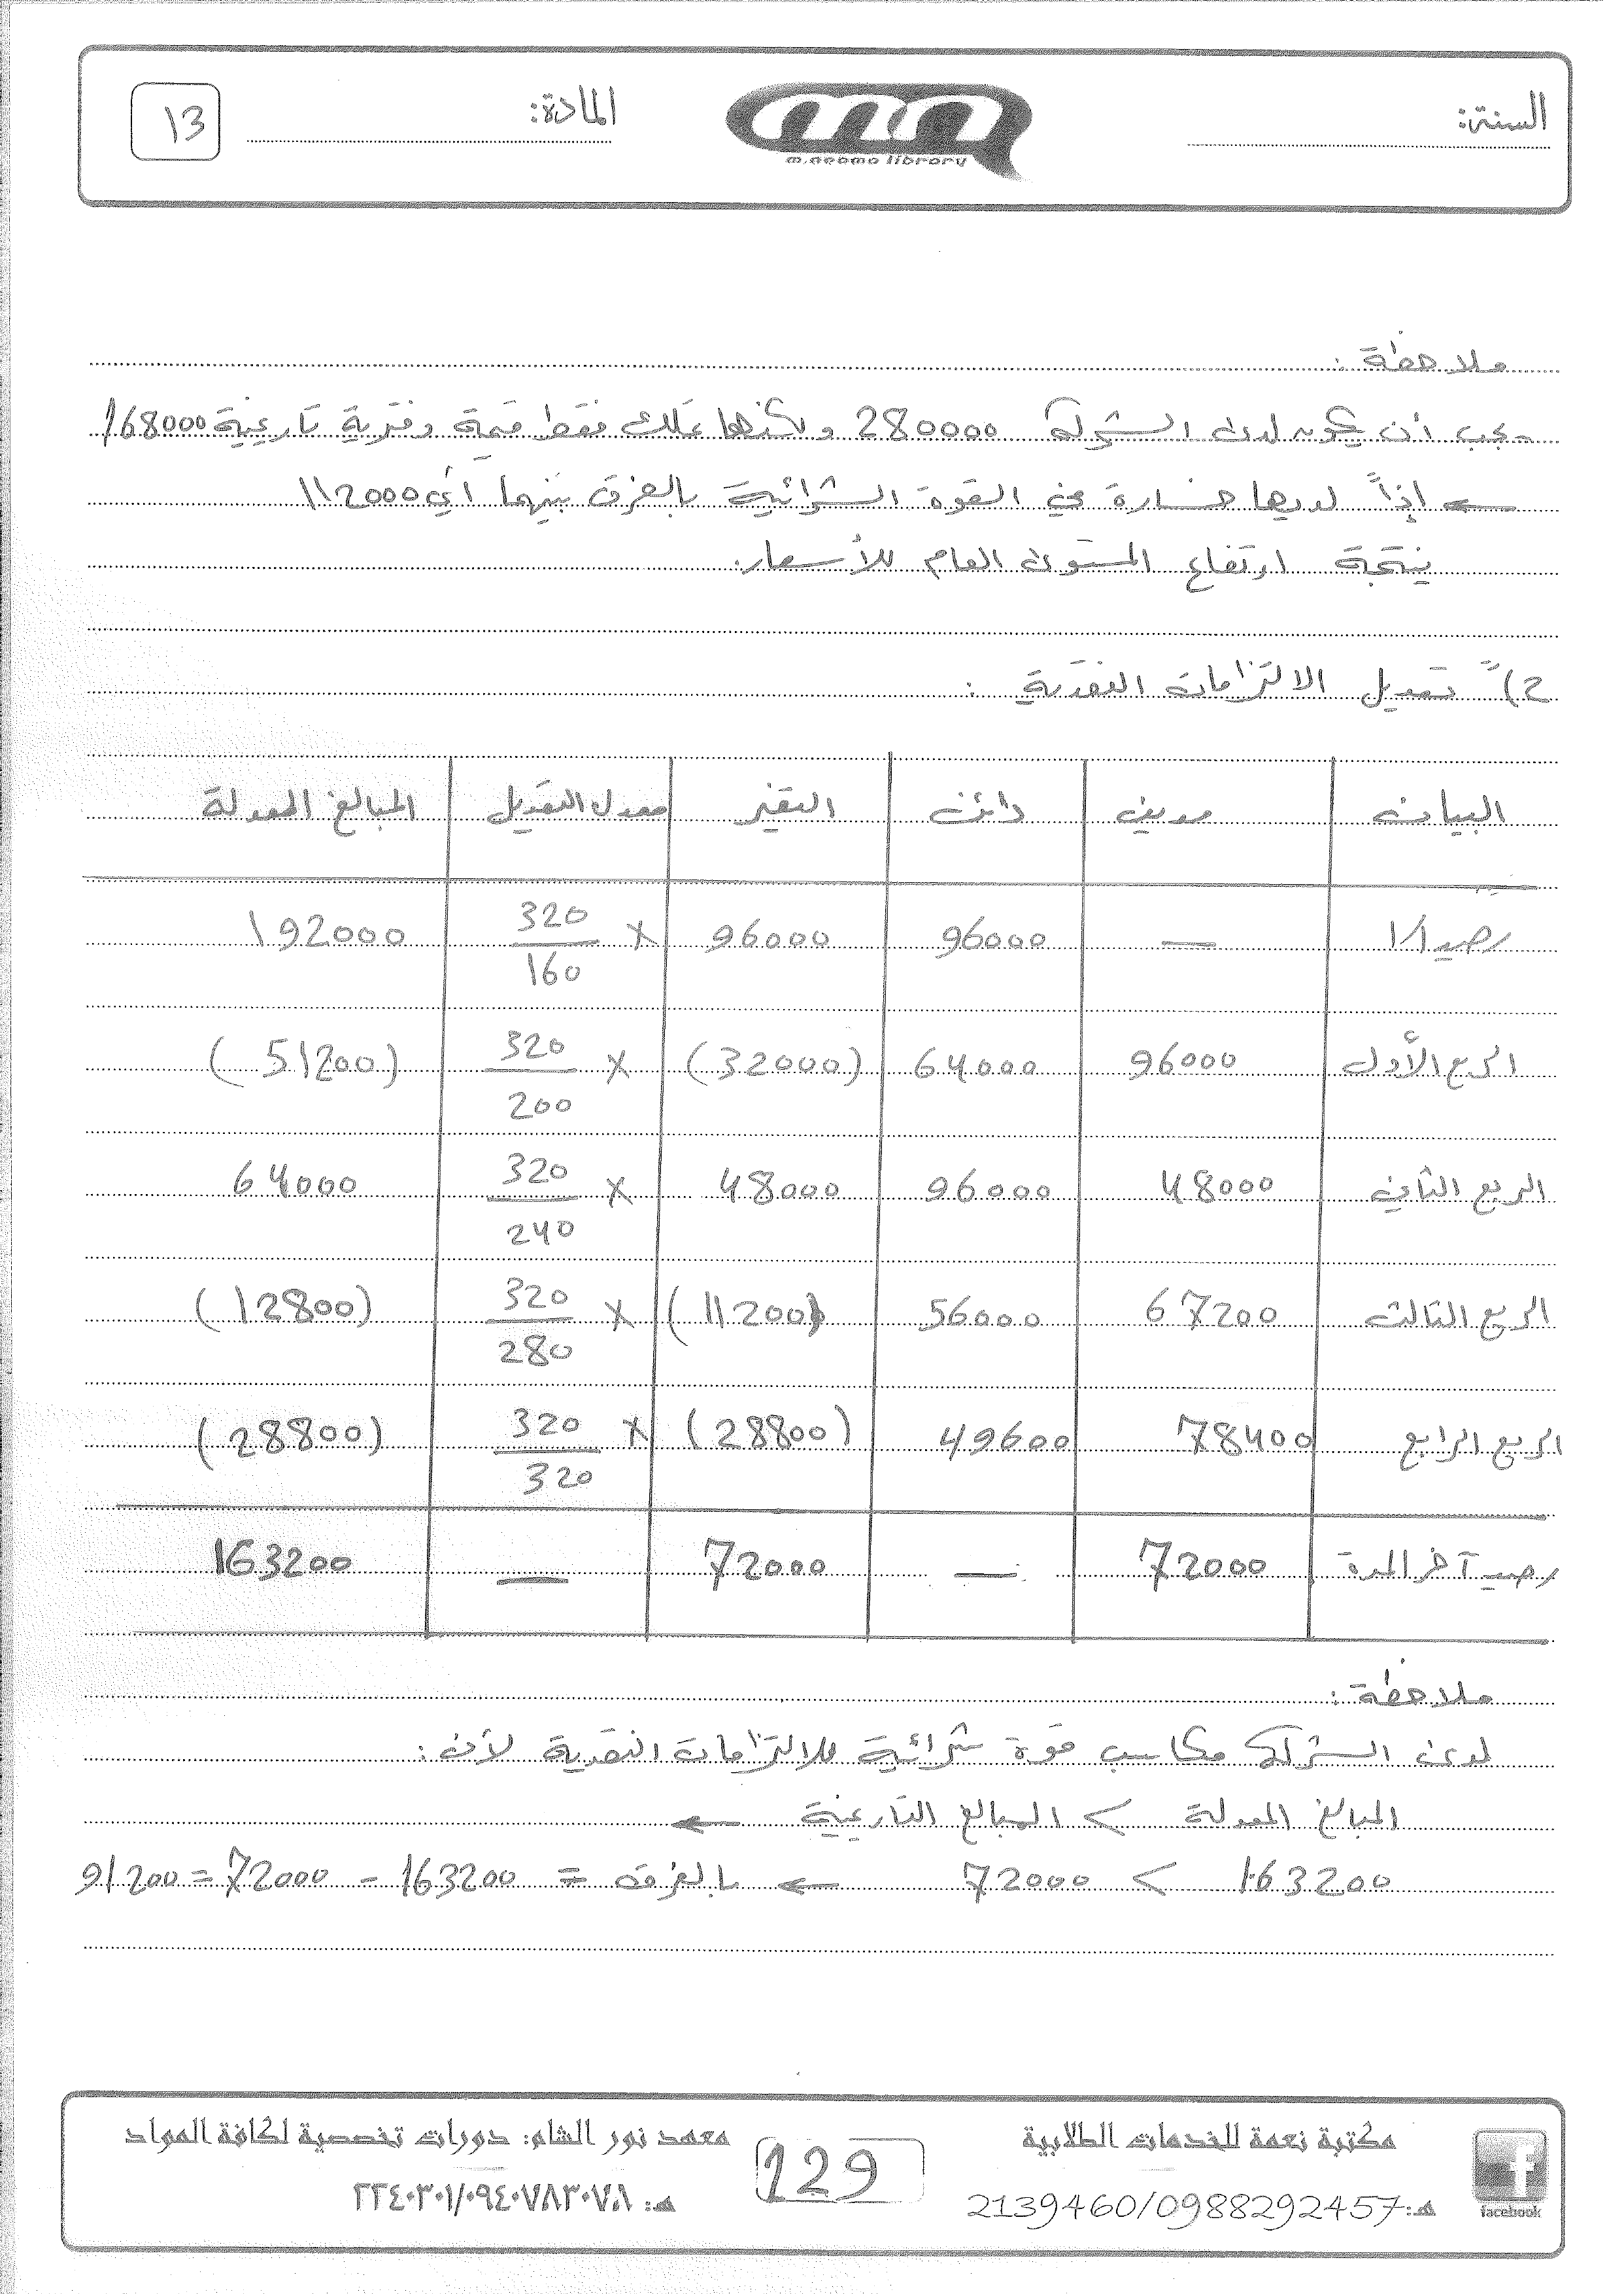 السنة: المادة: 13
m.neama library
ملاحظة:
يجب أن يكون لدى الشركة 280000 ولكنها تملك فقط قيمة دفترية تاريخية 168000
← إذاً لديها خسارة في القوة الشرائية بالفرق بينهما أي 112000
نتيجة ارتفاع المستوى العام للأسعار.
2) تعديل الالتزامات النقدية :
البيان مدين دائن التغير معدل التعديل المبالغ المعدلة
رصيد 1/1 — 96000 96000 × 320/160 192000
الربع الأول 96000 64000 (32000) × 320/200 (51200)
الربع الثاني 48000 96000 48000 × 320/240 64000
الربع الثالث 67200 56000 (11200) × 320/280 (12800)
الربع الرابع 78400 49600 (28800) × 320/320 (28800)
رصيد آخر المدة 72000 — 72000 — 163200
ملاحظة:
لدى الشركة مكاسب قوة شرائية للالتزامات النقدية لأن :
المبالغ المعدلة > المبالغ التاريخية ←
163200 > 72000 ← بالفرق = 163200 - 72000 = 91200
مكتبة نعمة للخدمات الطلابية
هـ: 2139460/0988292457
facebook
129
معهد نور الشام: دورات تخصصية لكافة المواد
هـ: ٢٢٤٠٣٠١/٠٩٤٠٧٨٣٠٧٠٨